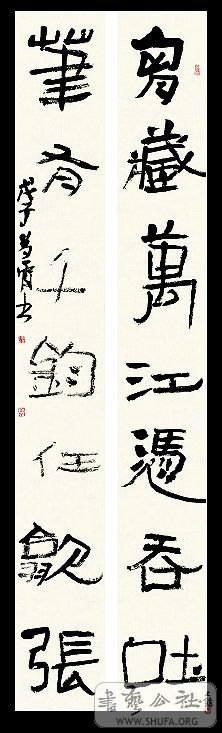 胷藏萬江憑吞吐
筆有千鈞任歙張
戊子
書藝公社
WWW.SHUFA.ORG